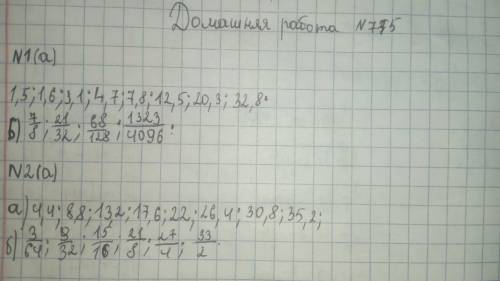 Домашняя работа №775
N1(а)
1,5; 1,6; 3,1; 4,7; 7,8; 12,5; 20,3; 32,8;
б) 7/8; 21/32; 68/128; 1323/4096;
N2(а)
а) 4,4; 8,8; 13,2; 17,6; 22; 26,4; 30,8; 35,2;
б) 3/64; 9/32; 15/16; 21/8; 27/4; 33/2